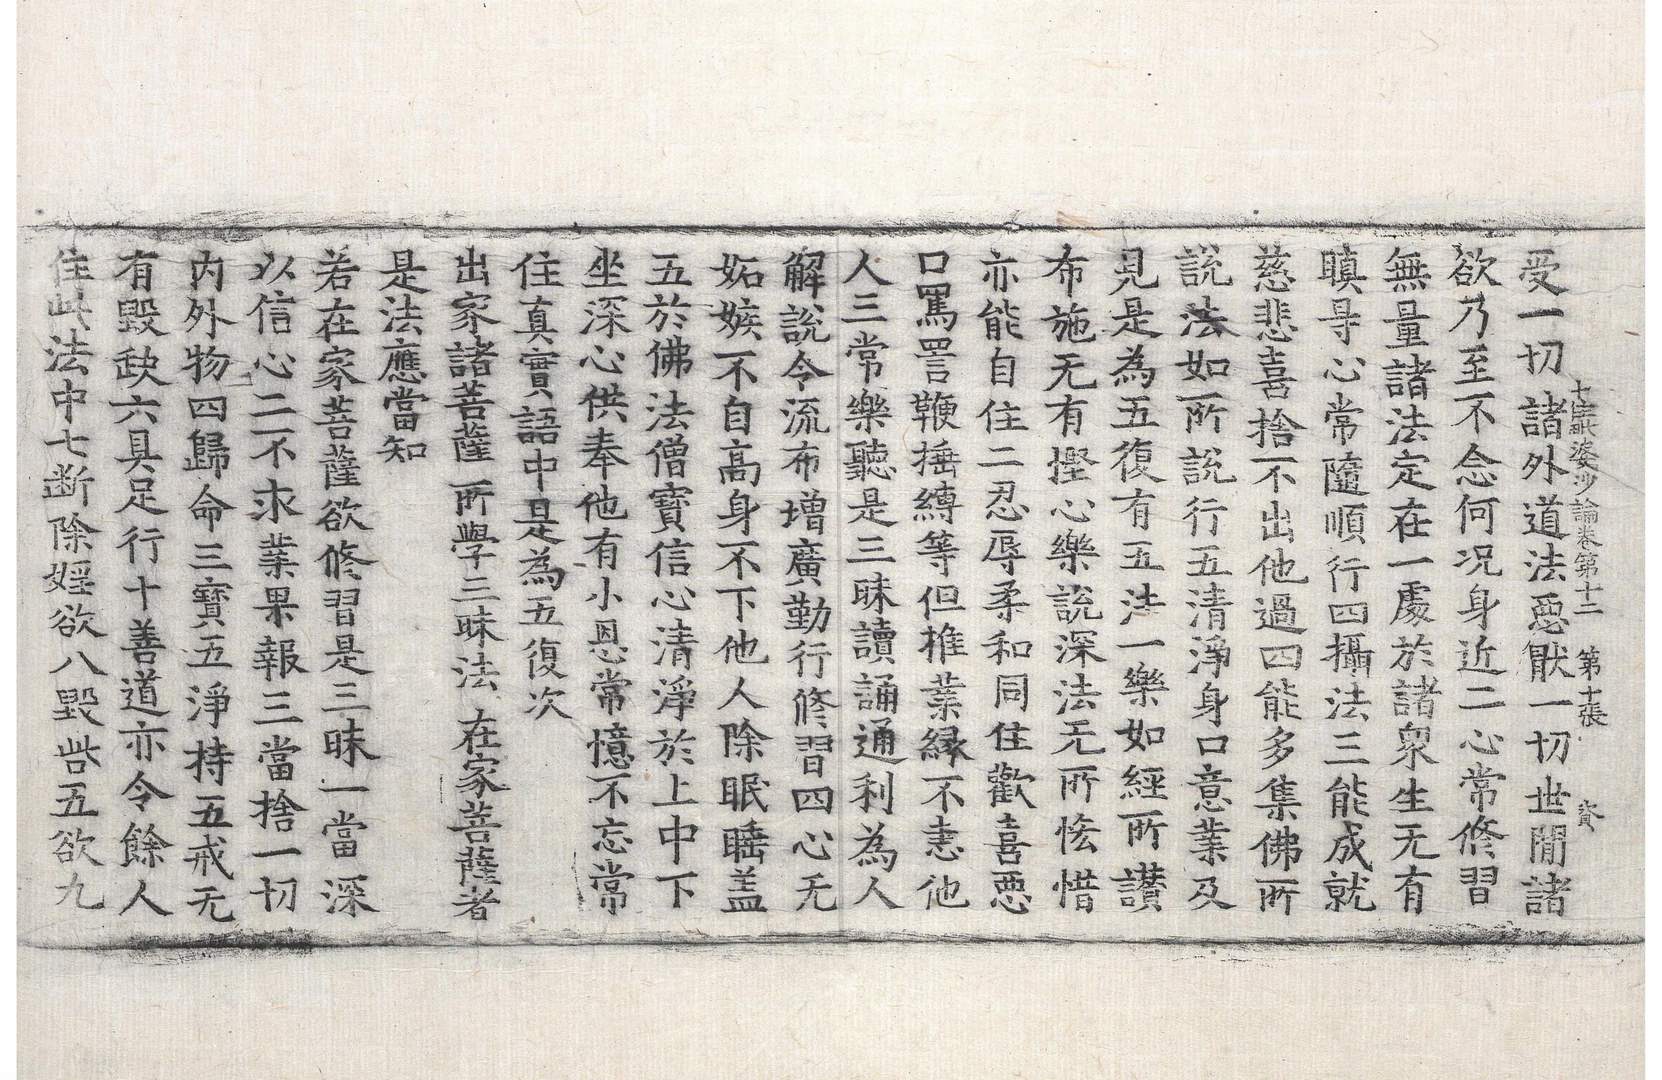 十住毗婆沙論卷第十二 第十張 賓
受一切諸外道法惡猒一切世閒諸
欲乃至不念何况身近二心常修習
無量諸法定在一處於諸衆生无有
瞋㝵心常隨順行四攝法三能成就
慈悲喜捨不出他過四能多集佛所
說法如所說行五清淨身口意業及
見是為五復有五法一樂如經所讃
布施无有慳心樂說深法无所恡惜
亦能自住二忍辱柔和同住歡喜惡
口罵詈鞭捶縛等但推業縁不恚他
人三常樂聽是三昧讀誦通利為人
解說令流布增廣勤行修習四心无
妬嫉不自高身不下他人除眠睡盖
五於佛法僧寶信心清淨於上中下
坐深心供奉他有小恩常憶不忘常
住真實語中是為五復次
出家諸菩薩 所學三昧法 在家菩薩者
是法應當知
若在家菩薩欲修習是三昧一當深
以信心二不求業果報三當捨一切
内外物四歸命三寶五淨持五戒无
有毀缺六具足行十善道亦令餘人
住此法中七断除婬欲八毀呰五欲九